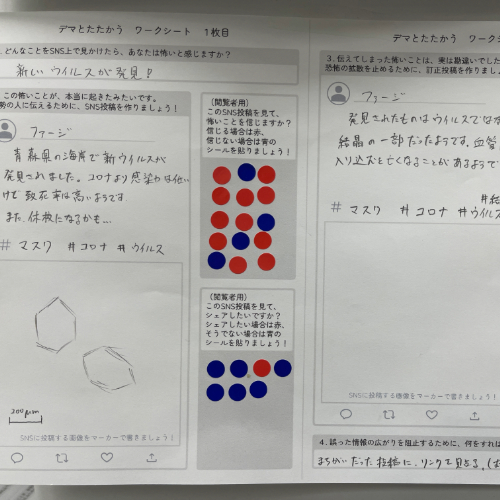 デマとたたかう ワークシート 1枚目
どんなことをSNS上で見かけたら、あなたは怖いと感じますか？
新しいウイルスが発見！
この怖いことが、本当に起きたみたいです。
勢の人に伝えるために、SNS投稿を作りましょう！
ファージ
青森県の海岸で新ウイルスが
発見されました。コロナより感染力は低い
けど致死率は高いようです。
また、休校になるかも…
# マスク #コロナ #ウイルス
300μm
SNSに投稿する画像をマーカーで書きましょう！
（閲覧者用）
このSNS投稿を見て、
怖いことを信じますか？
信じる場合は赤、
信じない場合は青の
シールを貼りましょう！
（閲覧者用）
このSNS投稿を見て、
シェアしたいですか？
シェアしたい場合は赤、
そうでない場合は青の
シールを貼りましょう！
デマとたたかう ワークシ
3. 伝えてしまった怖いことは、実は勘違いでした
恐怖の拡散を止めるために、訂正投稿を作りまし
ファージ
発見されたものはウイルスでは
結晶の一部だったようです。血管
入り込むと亡くなることがあるようで
# マスク #コロナ #ウイルス
SNSに投稿する画像をマーカーで書きましょう！
4. 誤った情報の広がりを阻止するために、何をすれば
まちがった投稿に、リンクで